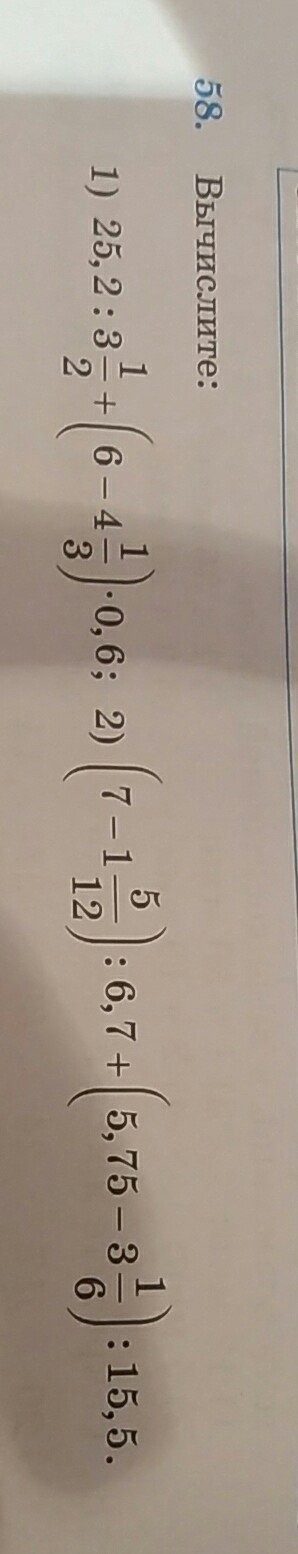 58. Вычислите:
1) 25,2 : 3 1/2 + (6 − 4 1/3) · 0,6; 2) (7 − 1 5/12) : 6,7 + (5,75 − 3 1/6) : 15,5.